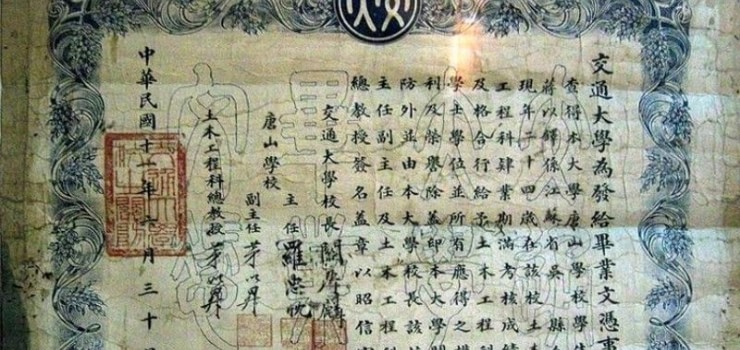 交通大學為發給畢業文憑事
查得本大學唐山學校學生
蔣以鐸係江蘇省吳縣
現年二十四歲在該校土木
工程科肄業期滿考核成績
及格合行給予土木工程科
學士學位並所有應得之權
利及榮譽除蓋印本大學關
防外並由本大學校長該校
主任副主任及土木工程科
總教授簽名蓋章以昭信
交通大學校長
唐山學校
主任 羅忠忱
副主任 茅以昇
土木工程科總教授 茅以昇
中華民國十一年六月三十